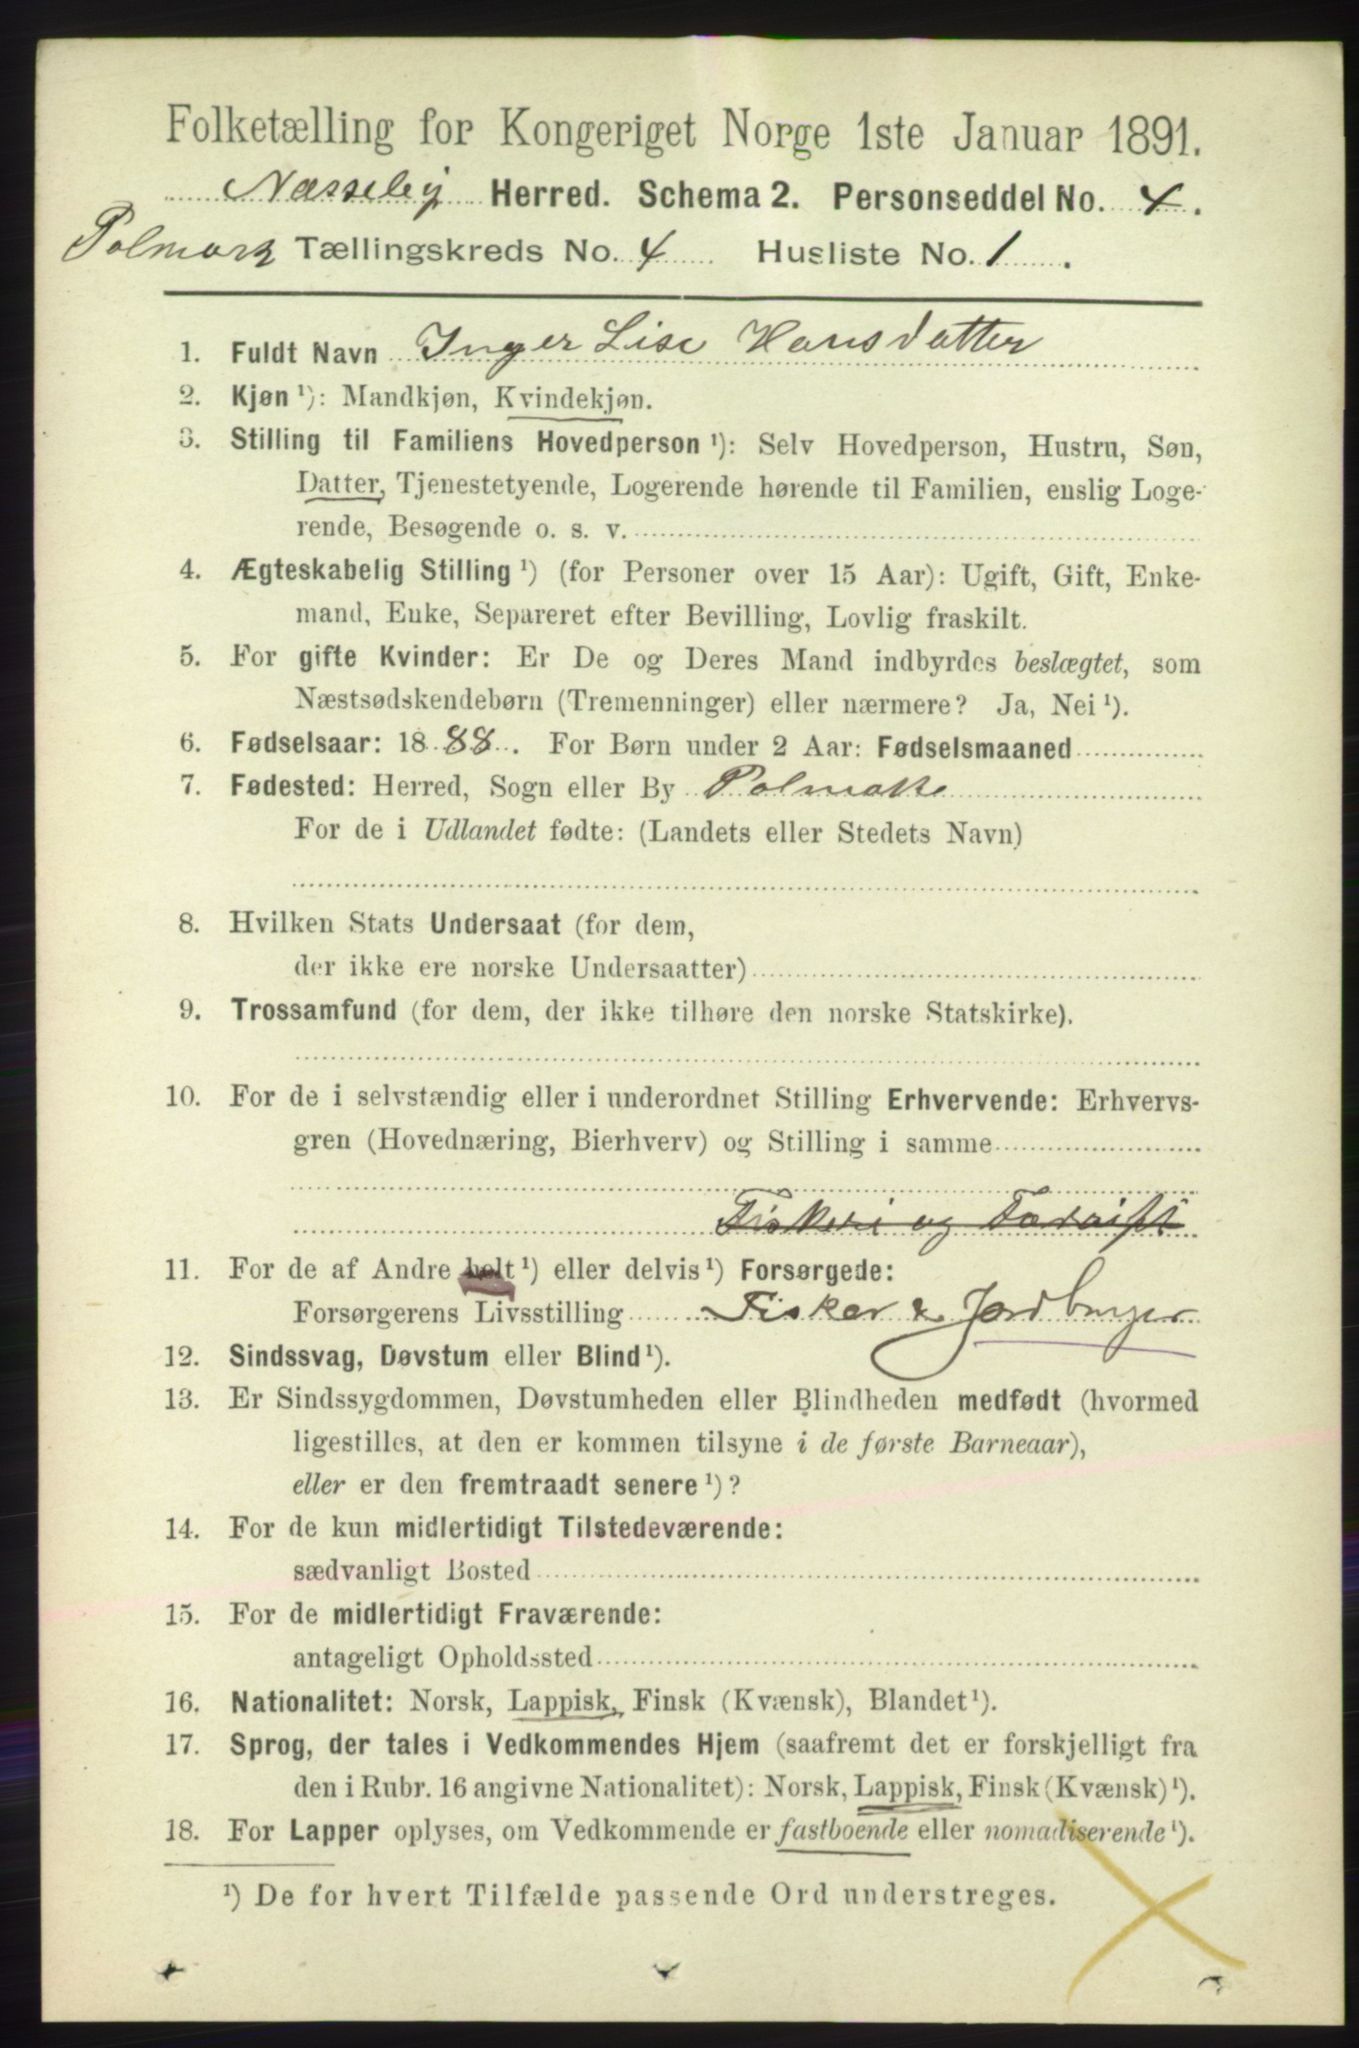 Folketælling for Kongeriget Norge 1ste Januar 1891.
Næsseby Herred. Schema 2. Personseddel No. 4.
Polmark Tællingskreds No. 4 Husliste No. 1.
1. Fuldt Navn Inger Lise Hansdatter
2. Kjøn ¹): Mandkjøn, Kvindekjøn.
3. Stilling til Familiens Hovedperson ¹): Selv Hovedperson, Hustru, Søn,
Datter, Tjenestetyende, Logerende hørende til Familien, enslig Loge-
rende, Besøgende o. s. v.
4. Ægteskabelig Stilling ¹) (for Personer over 15 Aar): Ugift, Gift, Enke-
mand, Enke, Separeret efter Bevilling, Lovlig fraskilt.
5. For gifte Kvinder: Er De og Deres Mand indbyrdes beslægtet, som
Næstsødskendebørn (Tremenninger) eller nærmere? Ja, Nei ¹).
6. Fødselsaar: 1888. For Børn under 2 Aar: Fødselsmaaned
7. Fødested: Herred, Sogn eller By Polmak
For de i Udlandet fødte: (Landets eller Stedets Navn)
8. Hvilken Stats Undersaat (for dem,
der ikke ere norske Undersaatter)
9. Trossamfund (for dem, der ikke tilhøre den norske Statskirke).
10. For de i selvstændig eller i underordnet Stilling Erhvervende: Erhvervs-
gren (Hovednæring, Bierhverv) og Stilling i samme
Fiskeri og
11. For de af Andre helt ¹) eller delvis ¹) Forsørgede:
Forsørgerens Livsstilling Fisker & Jordbruger
12. Sindssvag, Døvstum eller Blind ¹).
13. Er Sindssygdommen, Døvstumheden eller Blindheden medfødt (hvormed
ligestilles, at den er kommen tilsyne i de første Barneaar),
eller er den fremtraadt senere ¹)?
14. For de kun midlertidigt Tilstedeværende:
sædvanligt Bosted
15. For de midlertidigt Fraværende:
antageligt Opholdssted
16. Nationalitet: Norsk, Lappisk, Finsk (Kvænsk), Blandet ¹).
17. Sprog, der tales i Vedkommendes Hjem (saafremt det er forskjelligt fra
den i Rubr. 16 angivne Nationalitet): Norsk, Lappisk, Finsk (Kvænsk) ¹).
18. For Lapper oplyses, om Vedkommende er fastboende eller nomadiserende ¹).
¹) De for hvert Tilfælde passende Ord understreges.